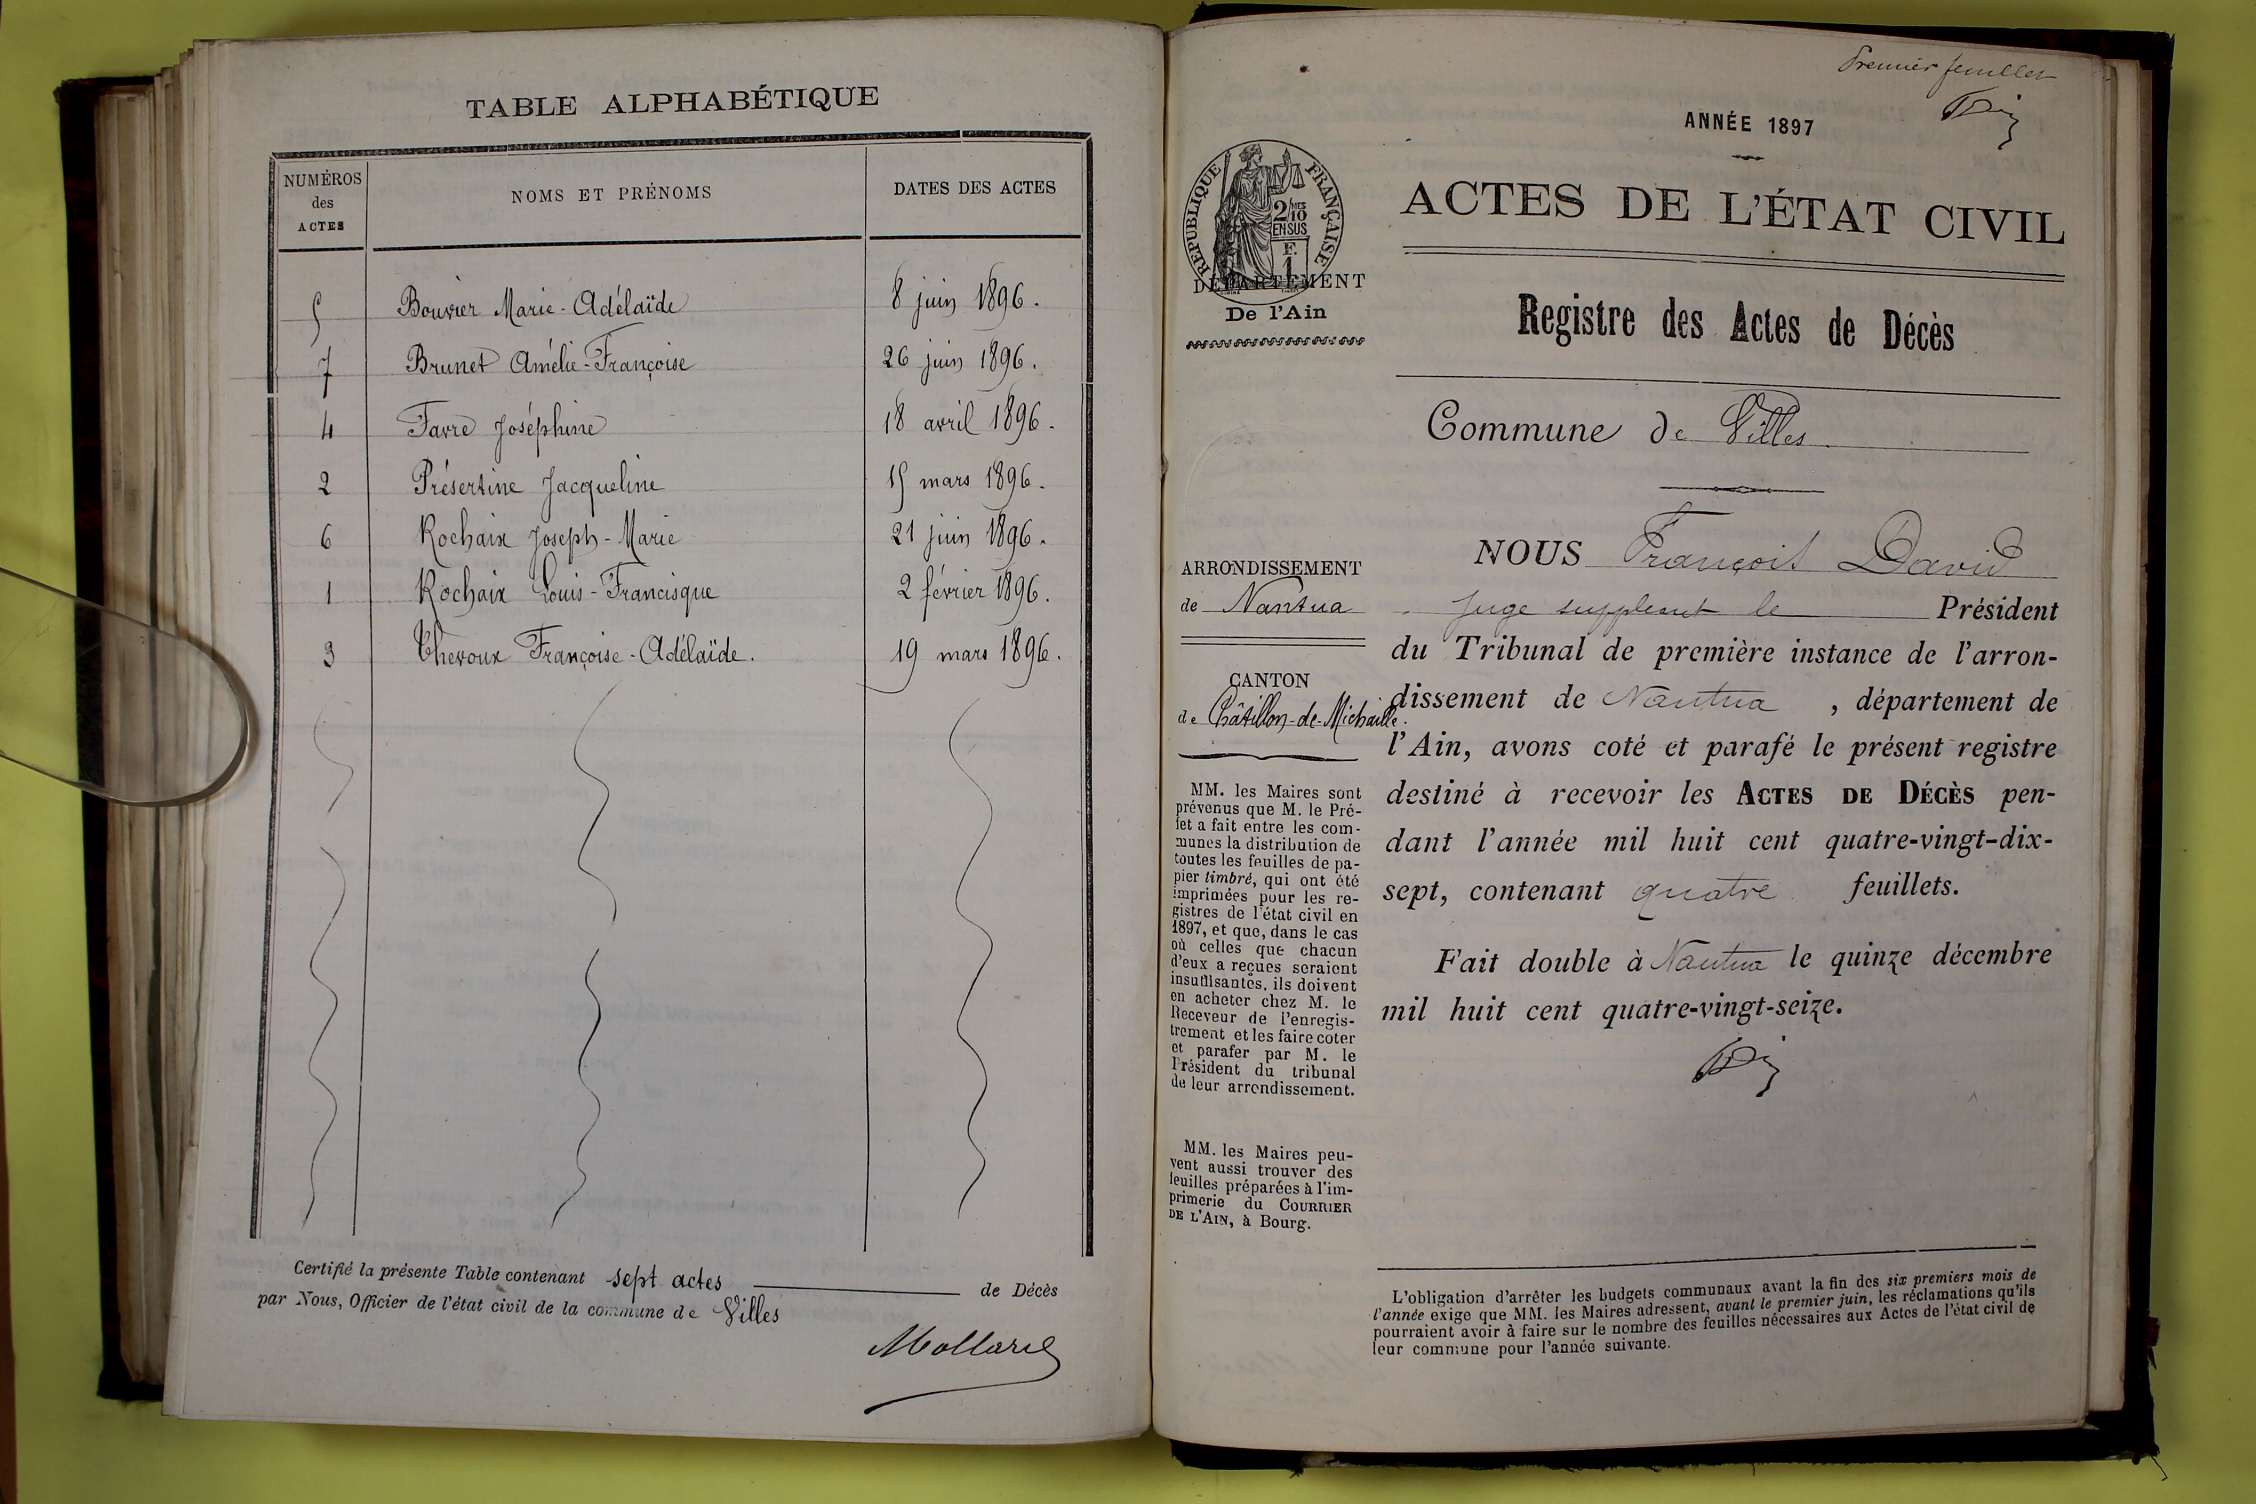 TABLE ALPHABÉTIQUE
NUMÉROS des ACTES NOMS ET PRÉNOMS DATES DES ACTES
5 Bouvier Marie-Adélaïde 8 juin 1896.
7 Brunet Amélie-Françoise 26 juin 1896.
4 Favre Joséphine 18 avril 1896.
2 Présertine Jacqueline 15 mars 1896.
6 Rochaix Joseph-Marie 21 juin 1896.
1 Rochaix Louis-Francisque 2 février 1896.
3 Chevoux Françoise-Adélaïde. 19 mars 1896.
Certifié la présente Table contenant sept actes de Décès
par Nous, Officier de l'état civil de la commune de Villes
Mollard
Premier feuillet
ANNÉE 1897
RÉPUBLIQUE FRANÇAISE
2/10 MES
EN SUS
F.
1
DÉPARTEMENT
De l'Ain
ACTES DE L'ÉTAT CIVIL
Registre des Actes de Décès
Commune de Villes
ARRONDISSEMENT
de Nantua
CANTON
de Châtillon-de-Michaille.
MM. les Maires sont
prévenus que M. le Pré-
fet a fait entre les com-
munes la distribution de
toutes les feuilles de pa-
pier timbré, qui ont été
imprimées pour les re-
gistres de l'état civil en
1897, et que, dans le cas
où celles que chacun
d'eux a reçues seraient
insuffisantes, ils doivent
en acheter chez M. le
Receveur de l'enregis-
trement et les faire coter
et parafer par M. le
Président du tribunal
de leur arrondissement.
MM. les Maires peu-
vent aussi trouver des
feuilles préparées à l'im-
primerie du COURRIER
DE L'AIN, à Bourg.
NOUS François David
Juge suppléant le Président
du Tribunal de première instance de l'arron-
dissement de Nantua , département de
l'Ain, avons coté et parafé le présent registre
destiné à recevoir les ACTES DE DÉCÈS pen-
dant l'année mil huit cent quatre-vingt-dix-
sept, contenant quatre feuillets.
Fait double à Nantua le quinze décembre
mil huit cent quatre-vingt-seize.
L'obligation d'arrêter les budgets communaux avant la fin des six premiers mois de
l'année exige que MM. les Maires adressent, avant le premier juin, les réclamations qu'ils
pourraient avoir à faire sur le nombre des feuilles nécessaires aux Actes de l'état civil de
leur commune pour l'année suivante.